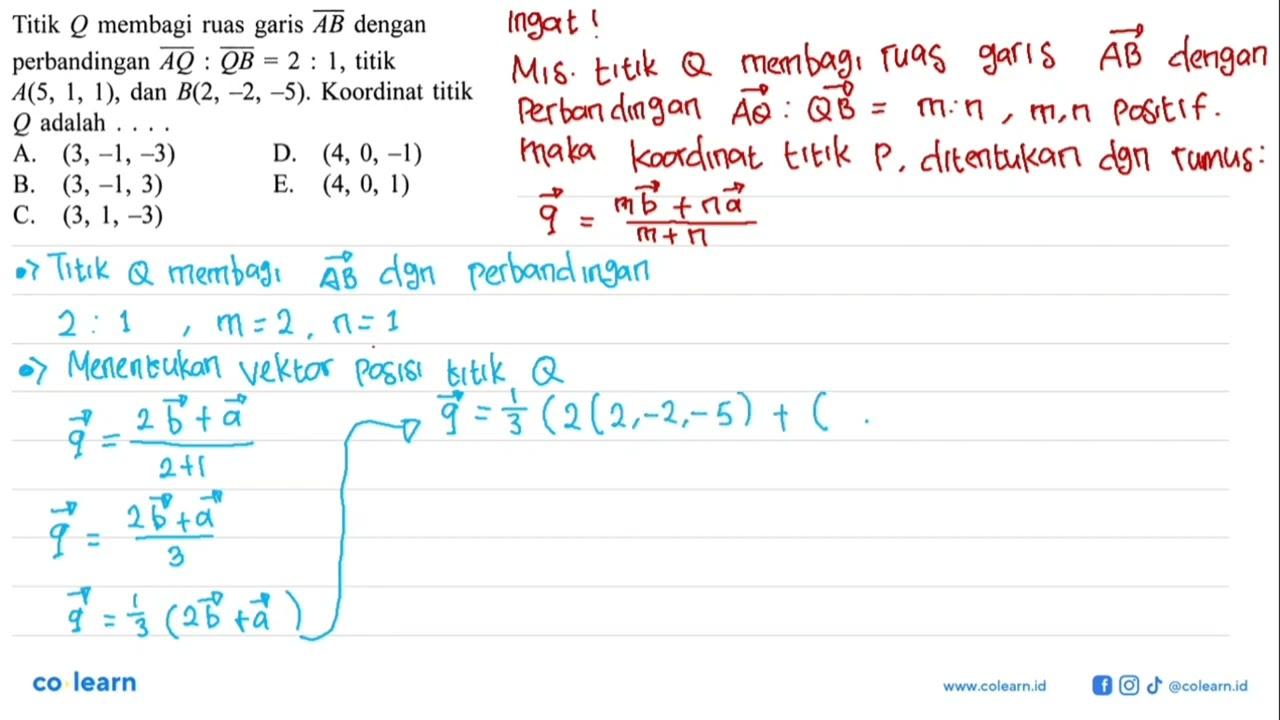 Titik Q membagi ruas garis AB dengan
perbandingan AQ : QB = 2 : 1, titik
A(5, 1, 1), dan B(2, –2, –5). Koordinat titik
Q adalah . . . .
A. (3, –1, –3) D. (4, 0, –1)
B. (3, –1, 3) E. (4, 0, 1)
C. (3, 1, –3)
Ingat!
Mis. titik Q membagi ruas garis AB dengan
Perbandingan AQ : QB = m:n , m,n positif.
maka koordinat titik P, ditentukan dgn rumus:
q = mb + na
m+n
Titik Q membagi AB dgn perbandingan
2 : 1 , m = 2, n = 1
Menentukan vektor posisi titik Q
q = 2b + a
2+1
q = 2b + a
3
q = 1/3 (2b + a)
q = 1/3 (2(2,-2,-5) + (
co learn
www.colearn.id
@colearn.id